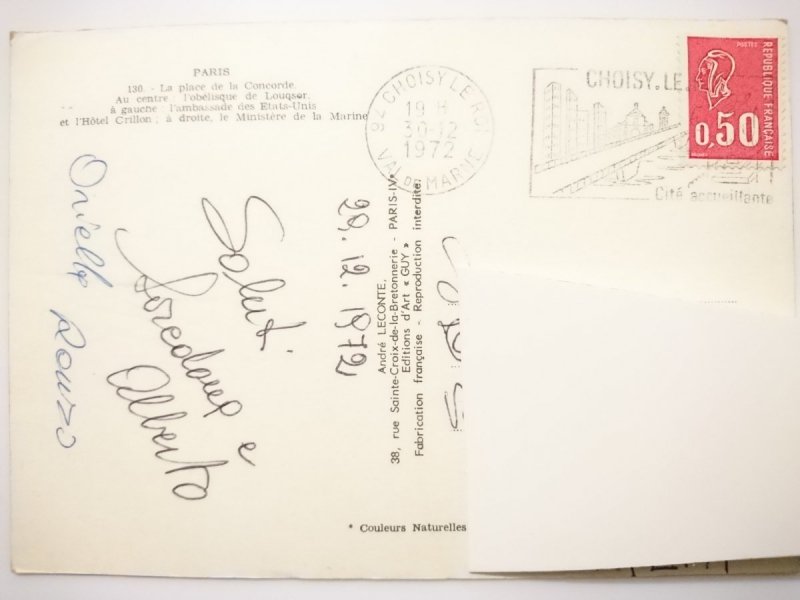 PARIS
130. - La place de la Concorde
Au centre : l'obélisque de Louqsor.
à gauche : l'ambassade des Etats-Unis
et l'Hôtel Crillon ; à droite, le Ministère de la Marine
94 CHOISY LE ROI
19 H
30-12
1972
VAL DE MARNE
CHOISY.LE.
Cité accueillante
POSTES
REPUBLIQUE FRANÇAISE
0,50
29.12.1972
Saluti
e
Alberto
Oriella Renzo
André LECONTE.
38, rue Sainte-Croix-de-la-Bretonnerie - PARIS-IVe
Editions d'Art « GUY »
Fabrication française - Reproduction interdite.
* Couleurs Naturelles